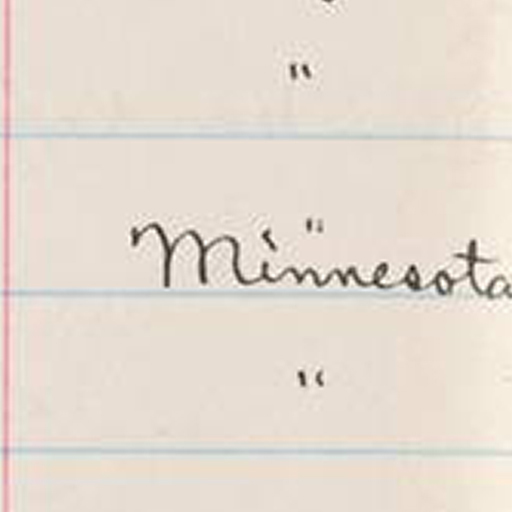 "
"
Minnesota
"